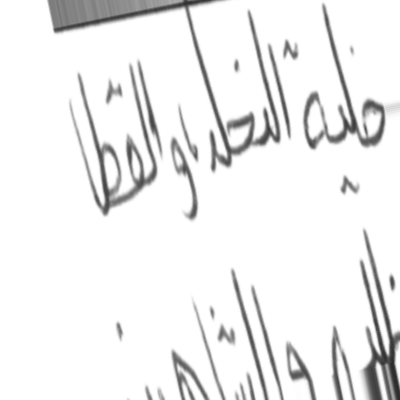 خلية النحل والقطا
والشاهين